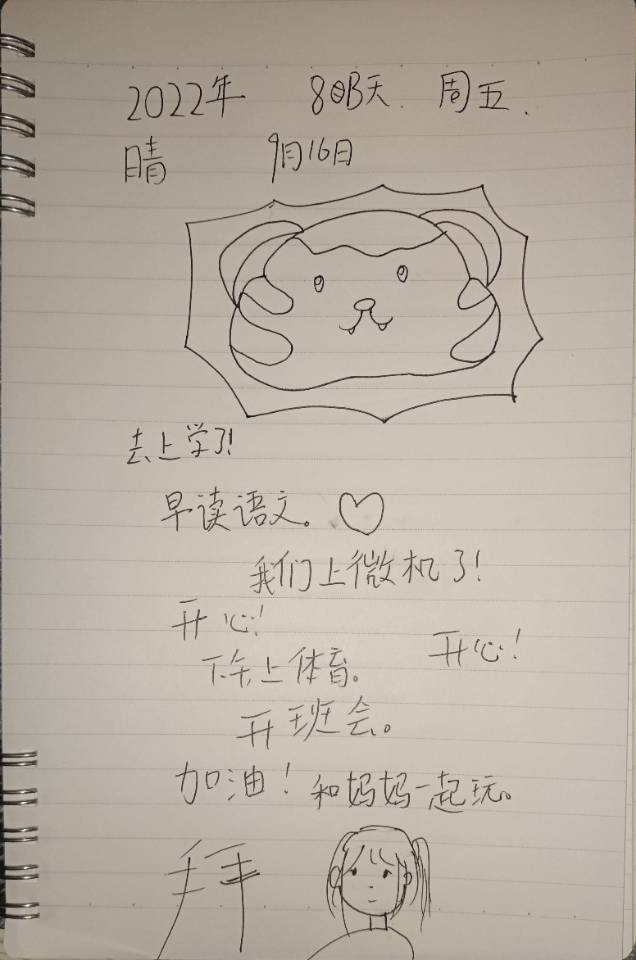 2022年 808天 周五.
晴 9月16日
去上学了!
早读语文。
我们上微机了!
开心!
开心!
下午上体育。
开班会。
加油! 和妈妈一起玩。
拜